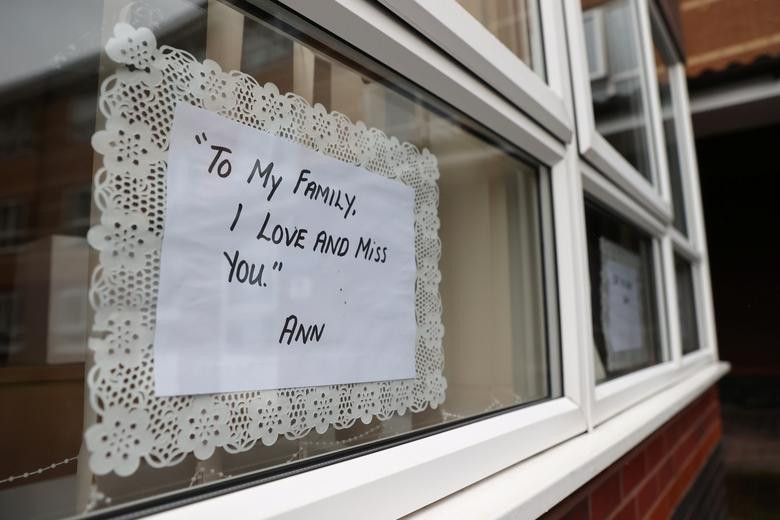 "To My Family,
I Love and Miss
You."
Ann